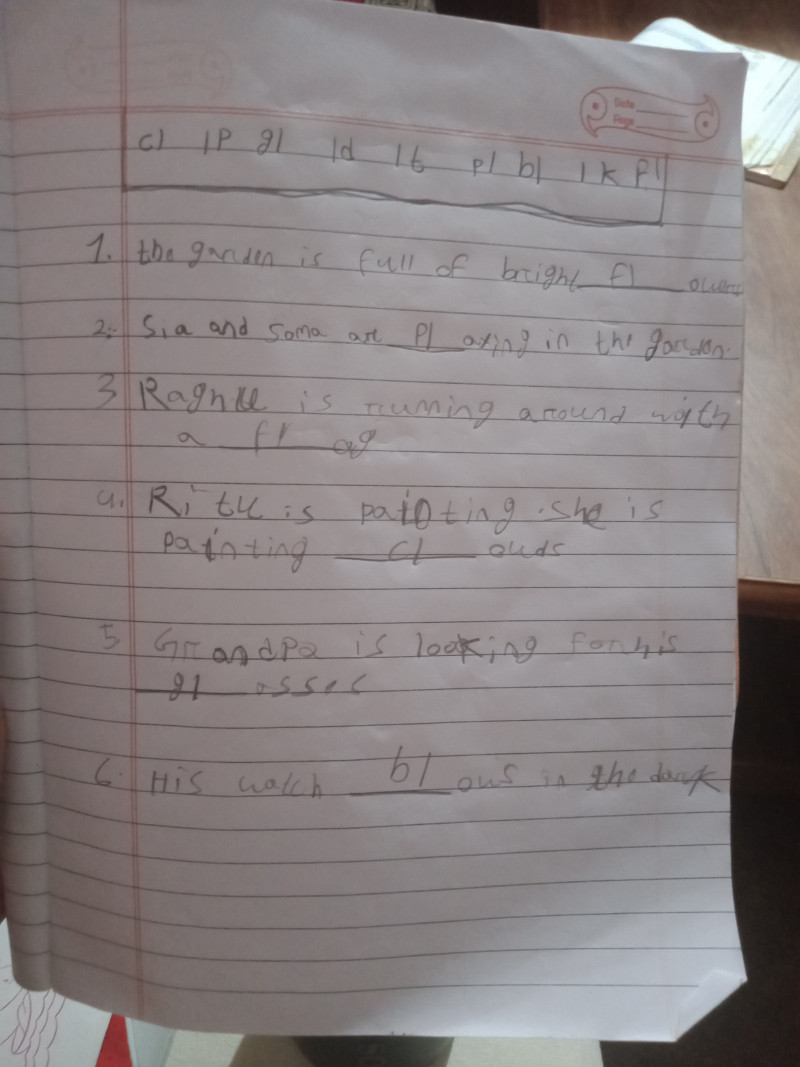 Date
Page
cl lp gl ld lt pl bl lk fl
1. the garden is full of bright fl owers
2. Sia and Soma are Pl aying in the garden.
3 is running around with
a fl ag
4. Ritu is painting. she is
painting cl ouds
5. Grandpa is looking for his
gl asses
6. His watch bl ows in the dark